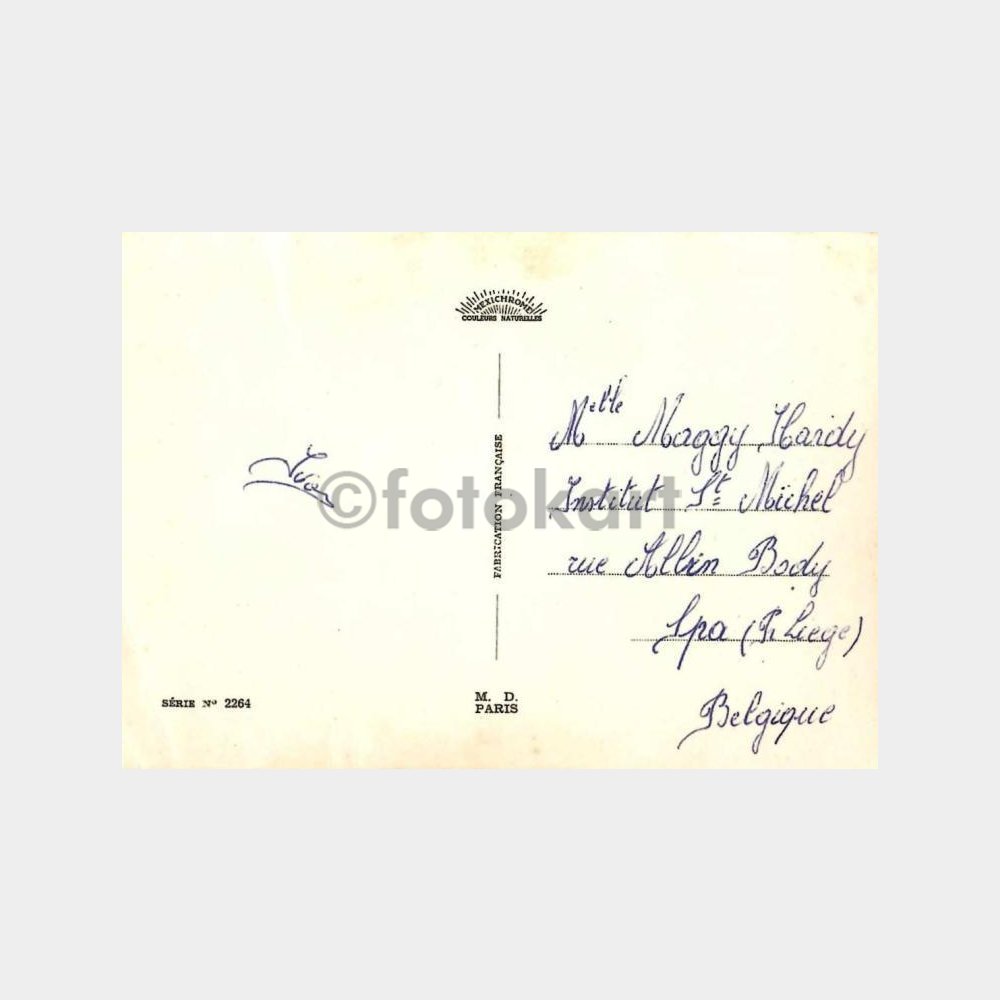 MEXICHROME
COULEURS NATURELLES
FABRICATION FRANÇAISE
©fotokart
Melle Maggy Hardy
Institut St Michel
rue Albin Body
Spa (Pr Liege)
Belgique
SÉRIE No 2264
M. D.
PARIS